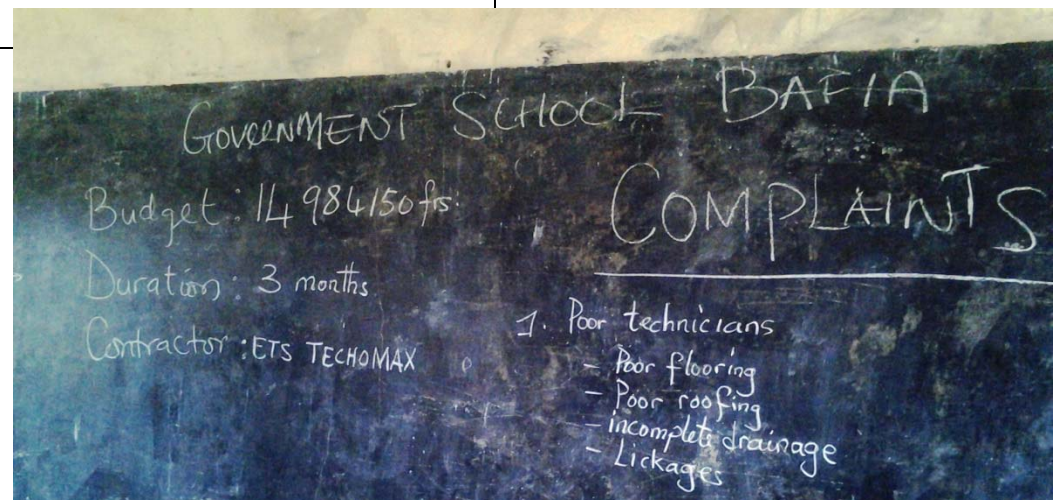 GOVERNMENT SCHOOL BAFIA
Budget: 14 984150 frs.
Duration: 3 months
Contractor: ETS TECHOMAX
COMPLAINTS
1. Poor technicians
- Poor flooring
- Poor roofing
- incomplete drainage
- Lickages